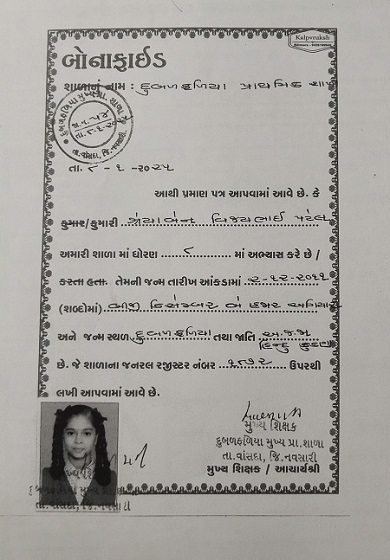 Kalpvruksh
બોનાફાઈડ
શાળાનું નામ : દુબળફળિયા પ્રાથમિક શાળા
દુબળફળિયા મુખ્ય પ્રા. શાળા
તા. ૮-૧-૨૦૨૫
તા.વાંસદા, જિ.નવસારી
તા. ૮ - ૧ - ૨૦૨૫
આથી પ્રમાણ પત્ર આપવામાં આવે છે. કે
કુમાર/કુમારી શ્રેયાબેન વિજયભાઈ પટેલ
અમારી શાળા માં ધોરણ ૮ માં અભ્યાસ કરે છે /
કરતા હતા. તેમની જન્મ તારીખ આંકડામાં ૨-૧૨-૨૦૧૧
(શબ્દોમાં) બીજી ડિસેમ્બર બે હજાર અગિયાર
અને જન્મ સ્થળ દુબળફળિયા તથા જાતિ અ.જ.જા
(હિન્દુ કુકણા)
છે. જે શાળાના જનરલ રજીસ્ટર નંબર ૧૮૭૨ ઉપરથી
લખી આપવામાં આવે છે.
મુખ્ય શિક્ષક
દુબળફળિયા મુખ્ય પ્રા.શાળા
તા.વાંસદા, જિ.નવસારી
મુખ્ય શિક્ષક / આચાર્યશ્રી
તા.વાંસદા, જિ.નવસારી